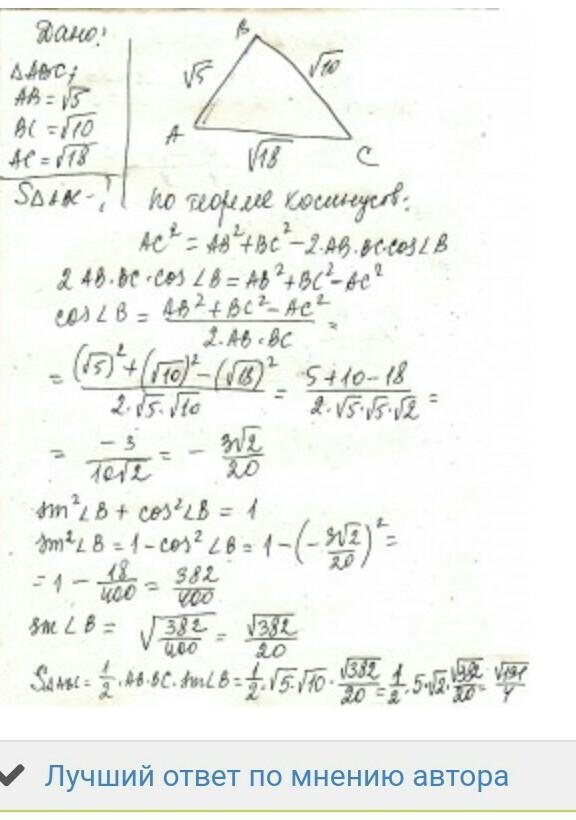 Дано:
B
△ABC;
AB = √5
BC = √10
AC = √18
√5
√10
A
√18
C
S△ABC - ?
По теореме косинусов:
AC² = AB² + BC² - 2·AB·BC·cos∠B
2 AB·BC·cos∠B = AB² + BC² - AC²
cos∠B = (AB² + BC² - AC²)/(2·AB·BC) =
= ((√5)² + (√10)² - (√18)²)/(2·√5·√10) = (5+10-18)/(2·√5·√5·√2) =
= -3/(10√2) = - 3√2/20
sin²∠B + cos²∠B = 1
sin²∠B = 1 - cos²∠B = 1 - (-3√2/20)² =
= 1 - 18/400 = 382/400
sin∠B = √(382/400) = √382/20
S△ABC = 1/2·AB·BC·sin∠B = 1/2·√5·√10·√382/20 = 1/2·5√2·√382/20 = √191/4
Лучший ответ по мнению автора